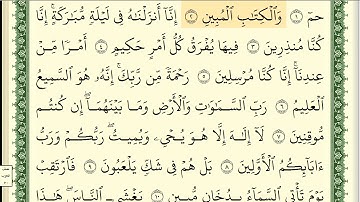 حمٓ ١ وَٱلْكِتَٰبِ ٱلْمُبِينِ ٢ إِنَّآ أَنزَلْنَٰهُ فِى لَيْلَةٍ مُّبَٰرَكَةٍ ۚ إِنَّا
كُنَّا مُنذِرِينَ ٣ فِيهَا يُفْرَقُ كُلُّ أَمْرٍ حَكِيمٍ ٤ أَمْرًا مِّنْ
عِندِنَآ ۚ إِنَّا كُنَّا مُرْسِلِينَ ٥ رَحْمَةً مِّن رَّبِّكَ ۚ إِنَّهُۥ هُوَ ٱلسَّمِيعُ
ٱلْعَلِيمُ ٦ رَبِّ ٱلسَّمَٰوَٰتِ وَٱلْأَرْضِ وَمَا بَيْنَهُمَآ ۖ إِن كُنتُم
مُّوقِنِينَ ٧ لَآ إِلَٰهَ إِلَّا هُوَ يُحْىِۦ وَيُمِيتُ ۖ رَبُّكُمْ وَرَبُّ
ءَابَآئِكُمُ ٱلْأَوَّلِينَ ٨ بَلْ هُمْ فِى شَكٍّ يَلْعَبُونَ ٩ فَٱرْتَقِبْ
يَوْمَ تَأْتِى ٱلسَّمَآءُ بِدُخَانٍ مُّبِينٍ ١٠ يَغْشَى ٱلنَّاسَ ۖ هَٰذَا